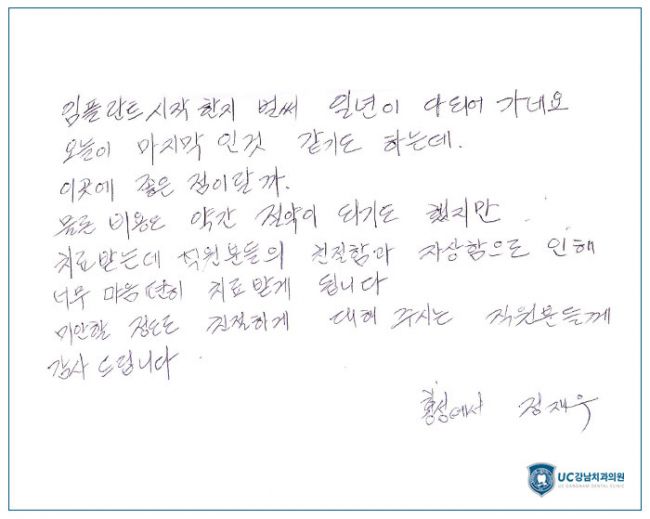 임플란트 시작 한지 벌써 일년이 다되어 가네요
오늘이 마지막 인것 같기도 하는데.
이곳에 좋은 점이랄까.
물론 비용은 약간 절약이 되기도 했지만
치료받는데 직원분들의 친절함과 자상함으로 인해
너무 마음 편히 치료 받게 됩니다
미안할 정도로 친절하게 대해 주시는 직원분들께
감사 드립니다.
홍성에서 정재욱
UC강남치과의원
UC GANGNAM DENTAL CLINIC